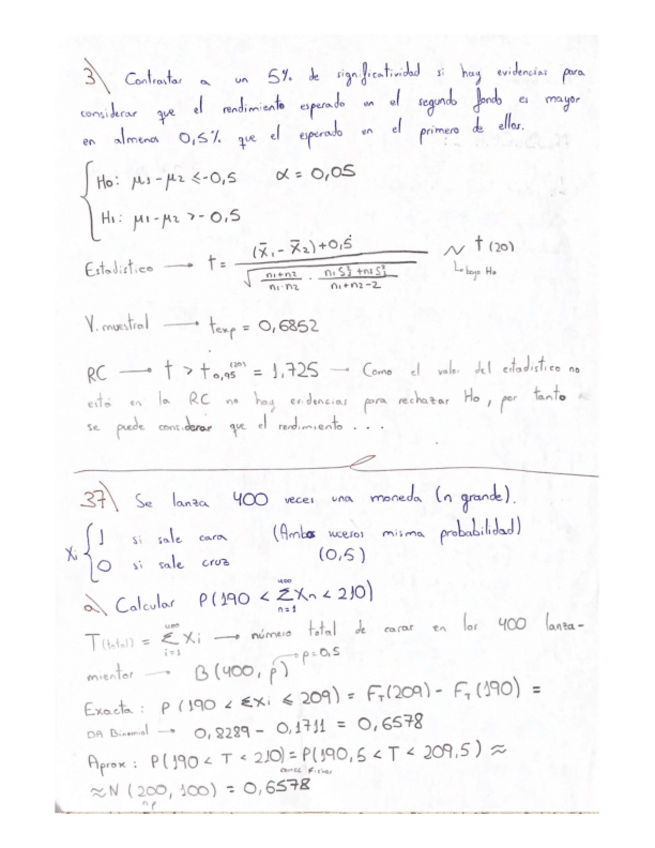 3) Contrastar a un 5% de significatividad si hay evidencias para
considerar que el rendimiento esperado en el segundo fondo es mayor
en almenos 0,5% que el esperado en el primero de ellos.
H0: μ1 - μ2 ≤ -0,5 α = 0,05
H1: μ1 - μ2 > -0,5
Estadístico → t = (x̄1 - x̄2) + 0,5 / √( n1+n2 / n1·n2 · n1 S1² + n2 S2² / n1+n2-2 ) ~ t (20)
↳ bajo H0
V. muestral → texp = 0,6852
RC → t > t0,95 (20) = 1,725 → Como el valor del estadístico no
está en la RC no hay evidencias para rechazar H0, por tanto
se puede considerar que el rendimiento ...
37) Se lanza 400 veces una moneda (n grande).
Xi { 1 si sale cara (Ambos sucesos misma probabilidad)
0 si sale cruz (0,5)
a) Calcular P(190 < Σ Xn < 210) n=1 400
T(total) = Σ Xi i=1 400 → número total de caras en los 400 lanza-
mientos → B(400, p) → p=0,5
Exacta: P(190 < ΣXi ≤ 209) = FT(209) - FT(190) =
DA Binomial → 0,8289 - 0,1711 = 0,6578
Aprox: P(190 < T < 210) = P(190,5 < T < 209,5) ≈
≈ N (200, 100) = 0,6578
np